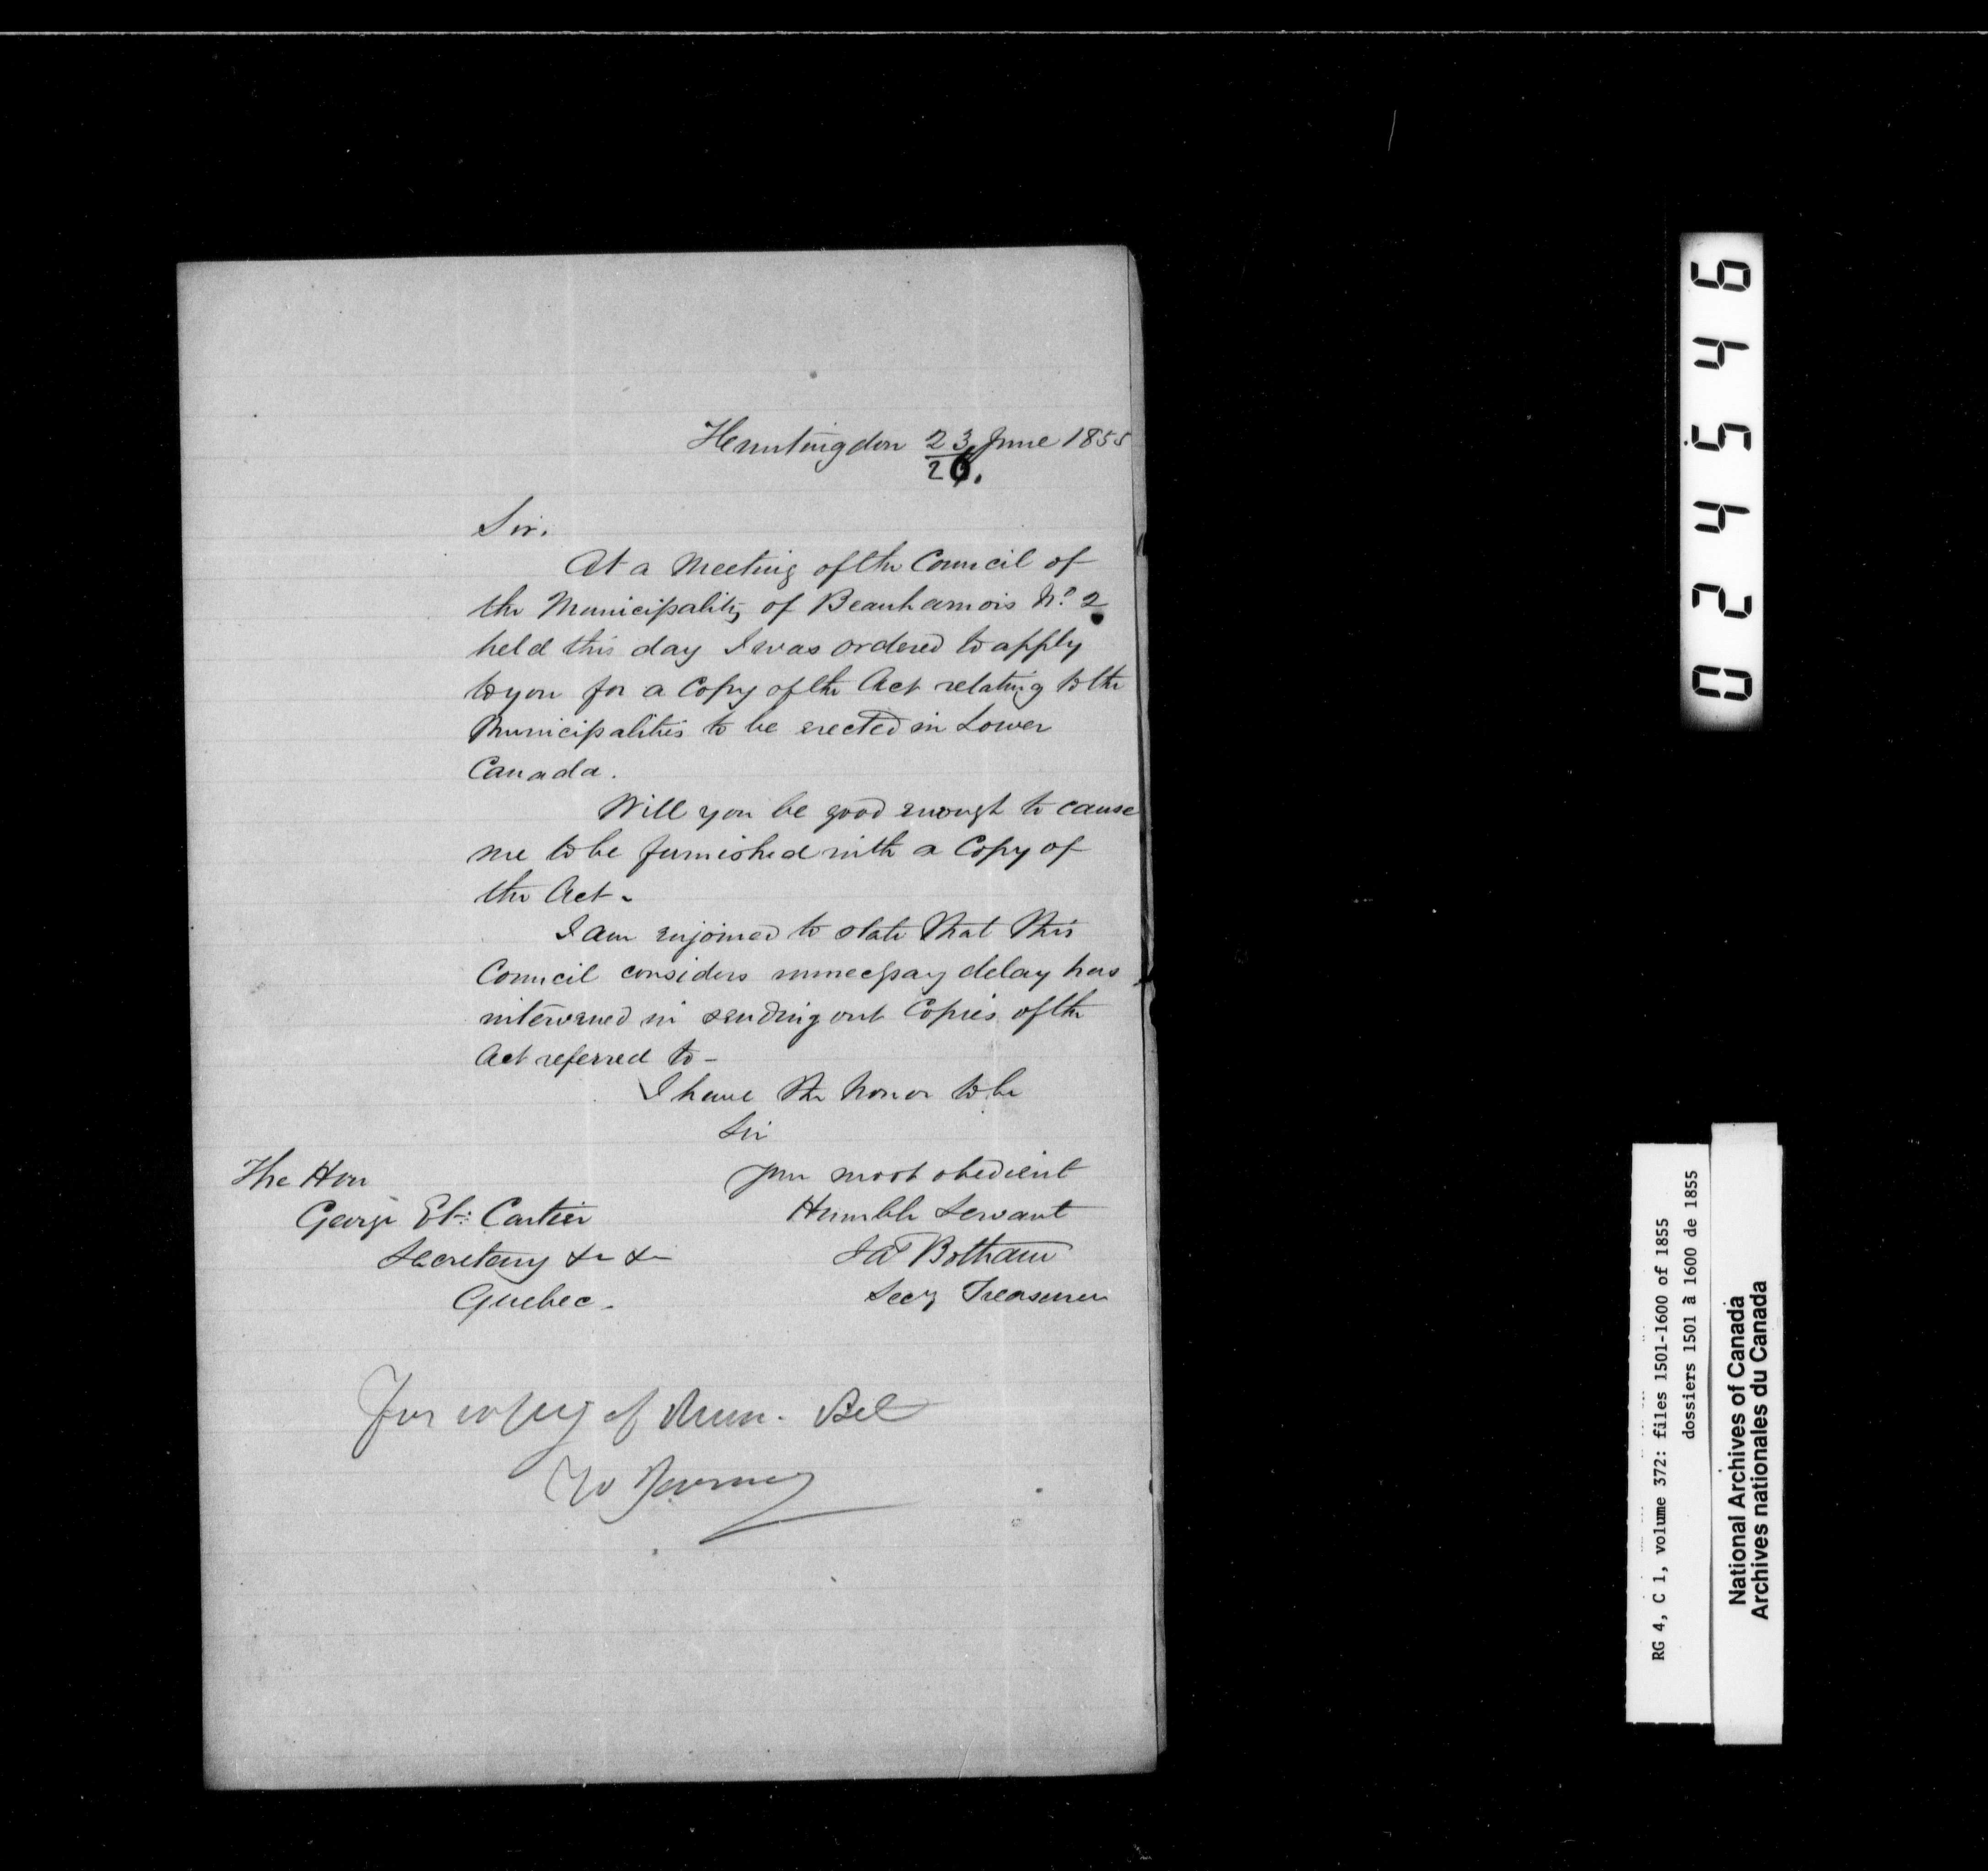 Huntingdon 23 June 1855
26.
Sir.
At a Meeting of the Council of
the Municipality of Beauharnois No. 2
held this day I was ordered to apply
to you for a Copy of the Act relating to the
Municipalities to be erected in Lower
Canada.
Will you be good enough to cause
me to be furnished with a Copy of
the Act -
I am enjoined to state that this
Council considers unnecessary delay has
intervened in sending out Copies of the
Act referred to -
I have the honor to be
Sir
your most obedient
Humble Servant
Botham
Secy Treasurer
The Hon
George Et: Cartier
Secretary &c &c
Quebec.
For copy of Mun. Bill
024546
RG 4, C 1, volume 372: files 1501-1600 of 1855
dossiers 1501 à 1600 de 1855
National Archives of Canada
Archives nationales du Canada